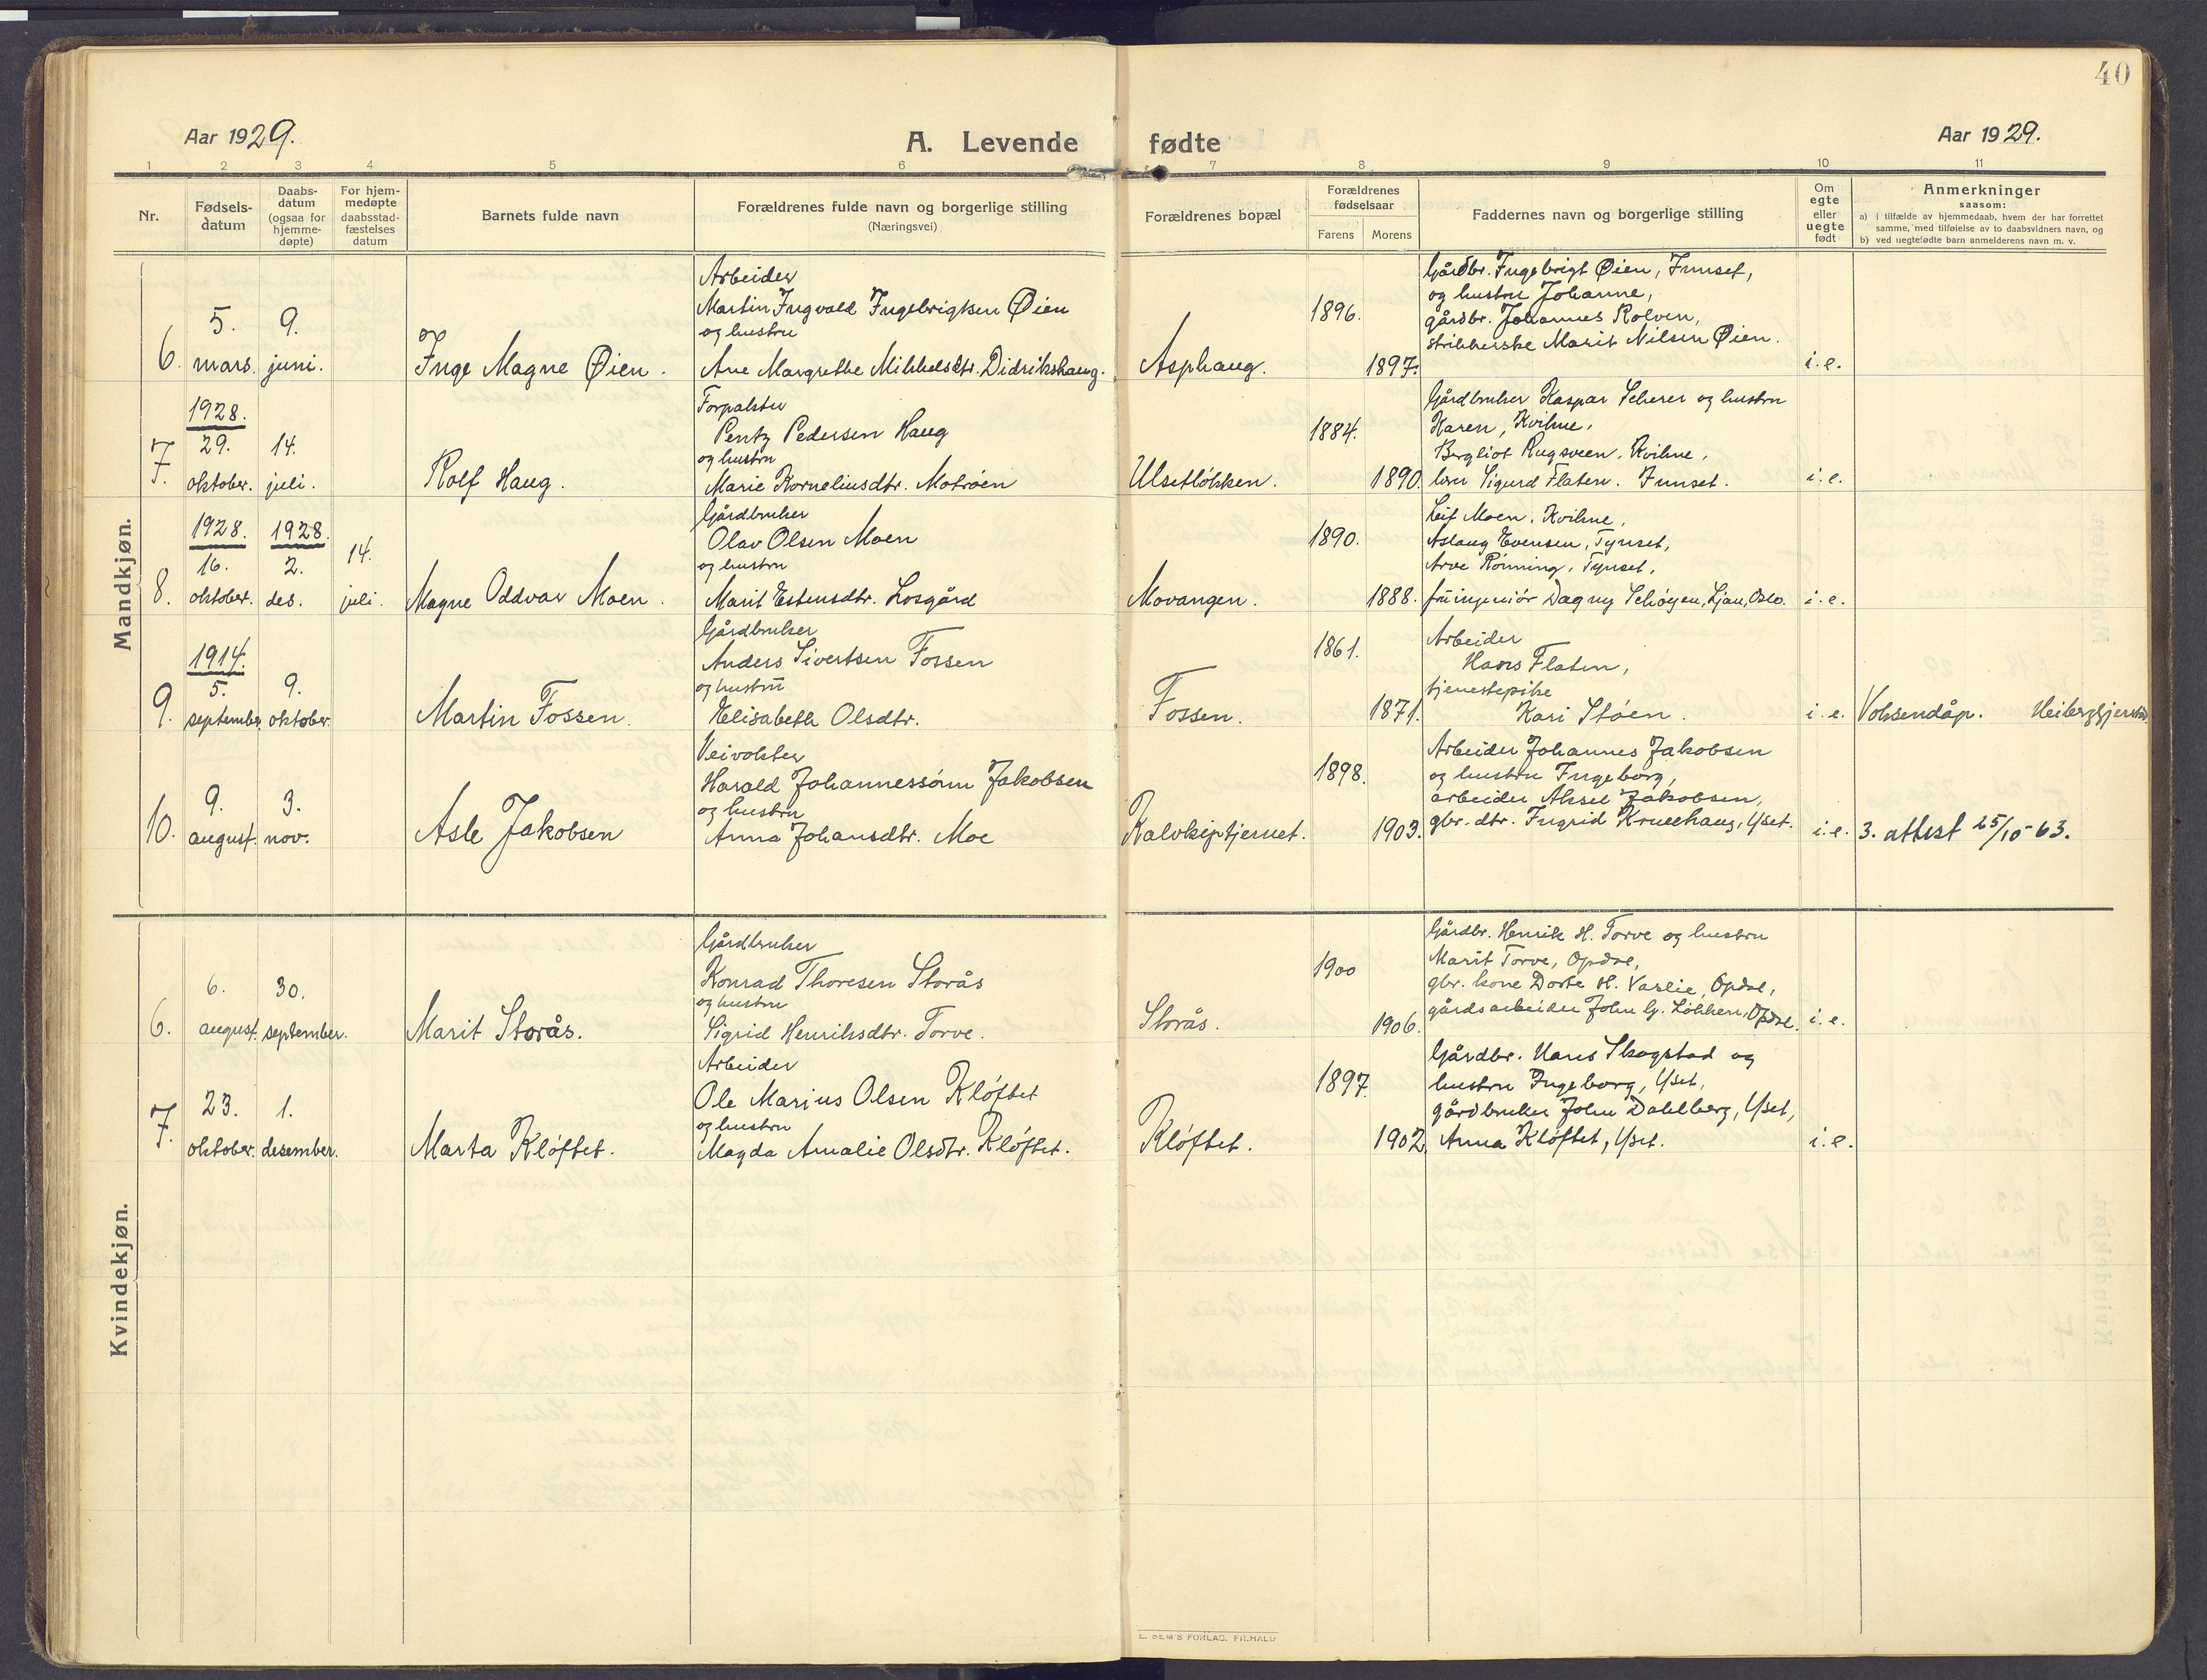 40
Aar 1929.
A. Levende fødte
Aar 1929.
1 2 3 4 5 6 7 8 9 10 11
Nr.
Fødsels-
datum
Daabs-
datum
(ogsaa for
hjemme-
døpte)
For hjem-
medøpte
daabsstad-
fæstelses
datum
Barnets fulde navn
Forældrenes fulde navn og borgerlige stilling
(Næringsvei)
Forældrenes bopæl
Forældrenes
fødselsaar
Farens Morens
Faddernes navn og borgerlige stilling
Om
egte
eller
uegte
født
Anmerkninger
saasom:
a) i tilfælde av hjemmedaab, hvem der har forrettet
samme, med tilføielse av to daabsvidners navn, og
b) ved uegtefødte barn anmelderens navn m. v.
Mandkjøn.
6.
5.
mars.
9.
juni.
Inge Magne Øien.
Arbeider
Martin Ingvald Ingebrigtsen Øien
og hustru
Ane Margrethe Mikkelsdtr. Didrikshaug.
Asphaug.
1896.
1897.
Gårdbr. Ingebrigt Øien, Innset,
og hustru Johanne,
gårdbr. Johannes Rolven,
strikkerske Marit Nilsen Øien.
i. e.
7.
1928.
29.
oktober.
14.
juli.
Rolf Haug.
Forpakter
Pentz Pedersen Haug
og hustru
Marie Korneliusdtr. Motrøen
Ulsetløkken.
1884.
1890.
Gårdbruker Kaspar Scherer og hustru
Karen, Kvikne,
Bergliot Rugsveen, Kvikne,
lærer Sigurd Flaten. Innset.
i. e.
8.
1928.
16.
oktober.
1928.
2.
des.
14.
juli.
Magne Oddvar Moen.
Gårdbruker
Olav Olsen Moen
og hustru
Marit Estensdtr. Losgård
Movangen.
1890.
1888.
Leif Moen, Kvikne,
Aslaug Evensen, Tynset,
Arve Rønning, Tynset,
fru ingeniør Dagny Schøyen, Ljan, Oslo.
i. e.
9.
1914.
5.
september.
9.
oktober.
Martin Fossen.
Gårdbruker
Anders Sivertsen Fossen
og hustru
Elisabeth Olsdtr.
Fossen.
1861.
1871.
Arbeider
Hans Flaten,
tjenestepike
Kari Støen.
i. e.
Voksendåp.
10.
9.
august.
3.
nov.
Asle Jakobsen
Veivokter
Harald Johannessønn Jakobsen
og hustru
Anna Johansdtr. Moe
Kalvkiptjernet.
1898.
1903.
Arbeider Johannes Jakobsen
og hustru Ingeborg,
arbeider Aksel Jakobsen,
gbr. dtr. Ingrid Kruchaug, Yset.
i. e.
3. attest 25/10-63.
Kvindekjøn.
6.
6.
august.
30.
september.
Marit Storås.
Gårdbruker
Konrad Thoresen Storås
og hustru
Sigrid Henriksdtr. Torve.
Storås.
1900
1906.
Gårdbr. Henrik H. Torve og hustru
Marit Torve, Opdal,
gbr. kone Dorte H. Vaslie, Opdal,
gårdsarbeider John G. Løkken, Opdal.
i. e.
7.
23.
oktober.
1.
desember.
Marta Kløftet.
Arbeider
Ole Marius Olsen Kløftet
og hustru
Magda Amalie Olsdtr. Kløftet.
Kløftet.
1897.
1902.
Gårdbr. Hans Skogstad og
hustru Ingeborg, Yset,
gårdbruker John Dahlberg, Yset,
Anna Kløftet, Yset.
i. e.
E. SEM'S FORLAG. FR.HALD